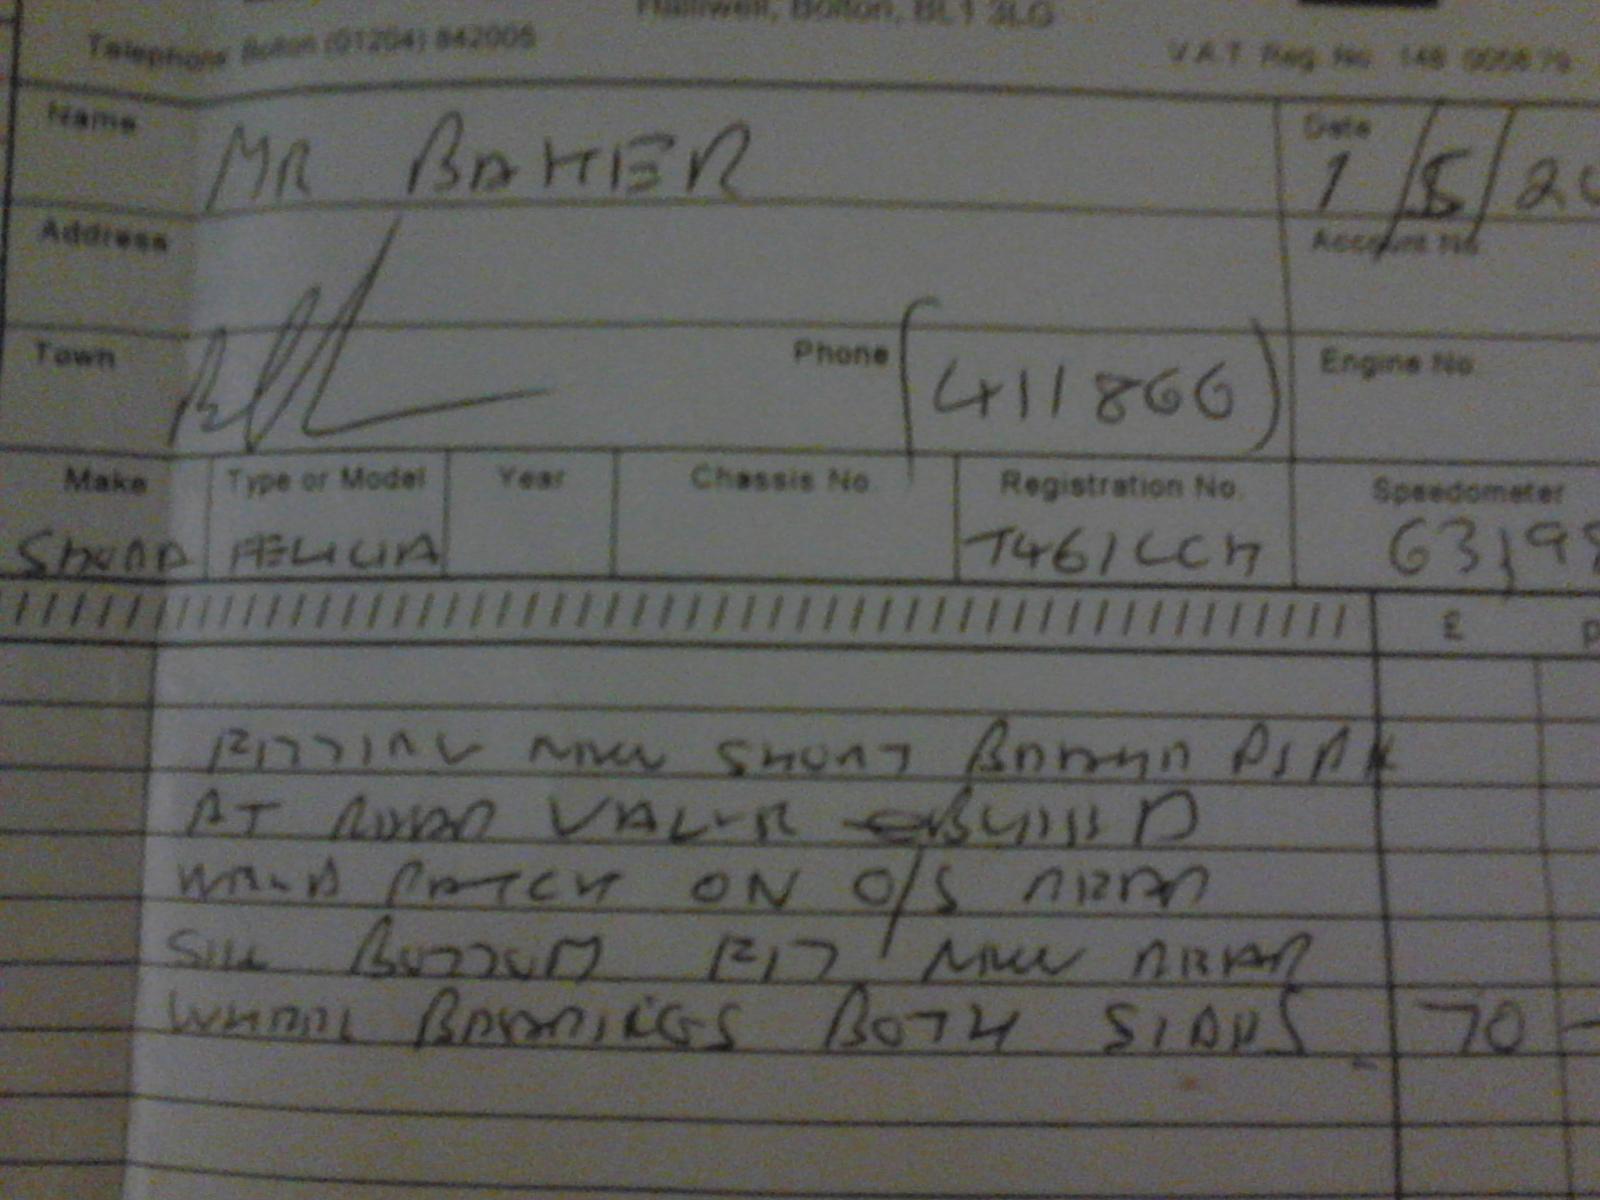 Halliwell, Bolton, BL1 3LG
Telephone Bolton (01204) 842005
V.A.T. Reg. No. 148
Name MR BAKER
Date 1/5/20
Address
Account No.
Town
Phone (411866)
Engine No.
Make Type or Model Year Chassis No. Registration No. Speedometer
SKODA FELICIA T461LCH 63,98
£ p
FITTING NEW SHORT BRAKE PIPE
AT REAR VALVE BLEED
WELD PATCH ON O/S REAR
SILL BOTTOM FIT NEW REAR
WHEEL BEARINGS BOTH SIDES 70 -